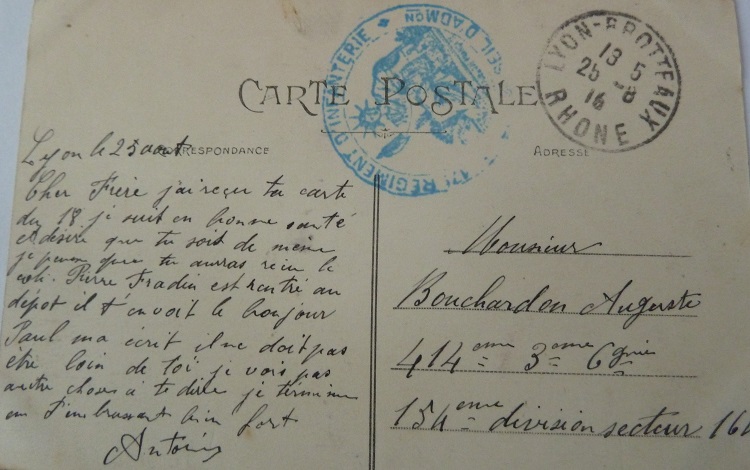 CARTE POSTALE
CORRESPONDANCE
ADRESSE
RÉGIMENT D'INFANTERIE
LYON-BROTTEAUX
RHONE
Lyon le 25 aout
Cher Frère j'ai reçu ta carte
du 18 je suit en bonne santé
et désire que tu soit de même
je pense que tu auras reçu le
coli. Pierre Fradin est rentré au
dépot il t'envoit le bonjour
Paul ma écrit il ne doit pas
etre loin de toi je vois pas
autre chose à te dire je termine
en t'embrassant bien fort
Antoine
Monsieur
Bouchardon Auguste
414eme 3eme Cgnie
154eme division secteur